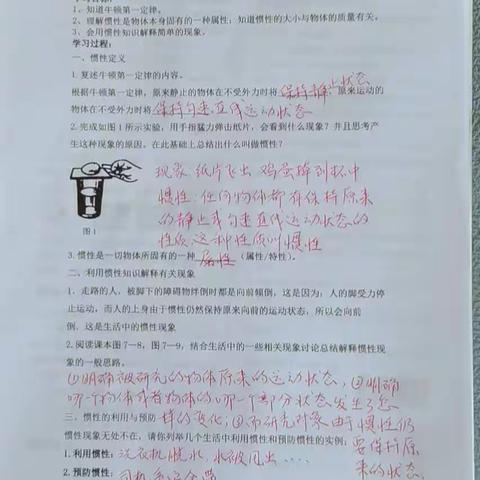 1、知道牛顿第一定律。
2、理解惯性是物体本身固有的一种属性;知道惯性的大小与物体的质量有关。
3、会用惯性知识解释简单的现象。
学习过程:
一、惯性定义
1.复述牛顿第一定律的内容。
根据牛顿第一定律,原来静止的物体在不受外力时将保持静止状态 原来运动的
物体在不受外力时将保持匀速直线运动状态
2.完成如图1所示实验,用手指猛力弹击纸片,会看到什么现象?并且思考产
生这种现象的原因。在此基础上总结出什么叫做惯性?
现象 纸片飞出 鸡蛋掉到杯中
惯性:任何物体都有保持原来
的静止或匀速直线运动状态的
性质 这种性质叫惯性
图1
3.惯性是一切物体所固有的一种属性(属性/特性)。
二、利用惯性知识解释有关现象
1、走路的人,被脚下的障碍物绊倒时都是向前倾倒,这是因为:人的脚受力停
止运动,而人的上身由于惯性仍然保持原来向前的运动状态,所以会向前
倒。这是生活中的惯性现象
2.阅读课本图7—8,图7—9,结合生活中的一些相关现象讨论总结解释惯性现
象的一般思路。
①明确被研究的物体原来的运动状态,②明确
哪个物体或者物体的哪个部分状态发生了怎
样的变化;③而研究对象由于惯性仍
要保持原
来的状态
三、惯性的利用与预防
惯性现象无处不在,请你列举几个生活中利用惯性和预防惯性的实例:
1.利用惯性:洗衣机脱水,水被甩出····
2.预防惯性:司机系安全带